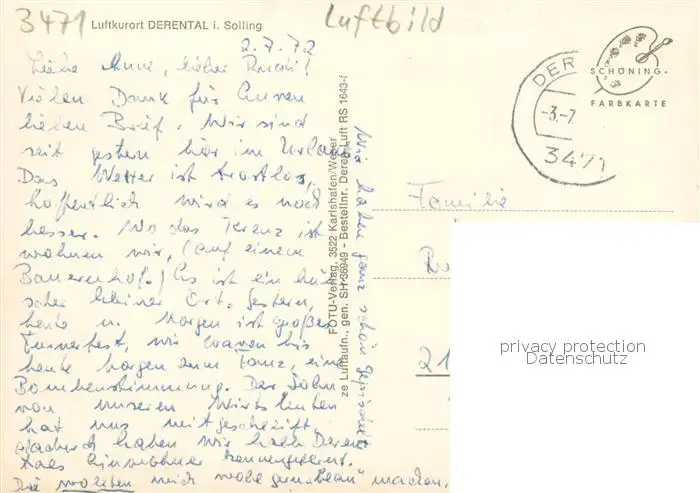 3471
Luftkurort DERENTAL i. Solling
Luftbild
2.7.72
Liebe Anne, lieber Rudi!
Vielen Dank für Euren
lieben Brief. Wir sind
seit gestern hier im Urlaub.
Das Wetter ist trostlos,
hoffentlich wird es noch
besser. Wo das Kreuz ist
wohnen wir, (auf einem
Bauernhof.) Es ist ein hüb
scher kleiner Ort. Gestern,
heute u. Morgen ist großes
Turnerfest, wir waren bis
heute morgen zum Tanz, eine
Bombenstimmung. Der Sohn
von unseren Wirtsleuten
hat uns mitgeschleift,
dadurch haben wir halb Deren
tals Einwohner kennengelernt.
Die wollten mich wohl gern "blau" machen.
Wir haben ganz schön
FOTU-Verlag, 3522 Karlshafen/Weser
ze Luftaufn., gen. SH 36949 - Bestellnr. Deren Luft RS 1643-f
DER
-3.-7.
3471
SCHÖNING-
FARBKARTE
Familie
21
privacy protection
Datenschutz